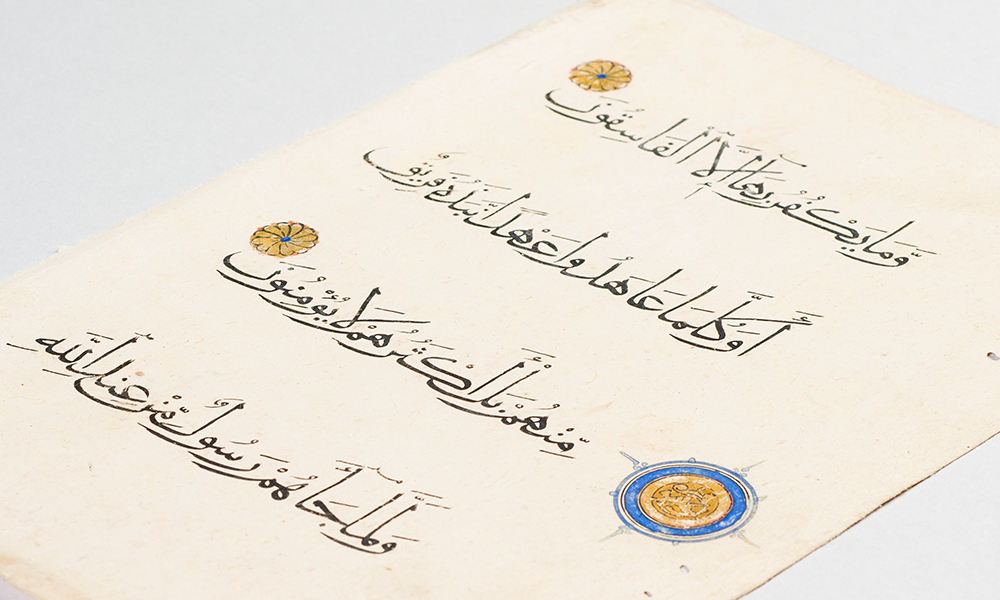 وَّمَا يَكْفُرُ بِهَا إِلَّا الْفَاسِقُونَ
أَوَكُلَّمَا عَاهَدُوا عَهْدًا نَّبَذَهُ فَرِيقٌ
مِّنْهُمْ بَلْ أَكْثَرُهُمْ لَا يُؤْمِنُونَ
وَلَمَّا جَاءَهُمْ رَسُولٌ مِّنْ عِنْدِ اللَّهِ